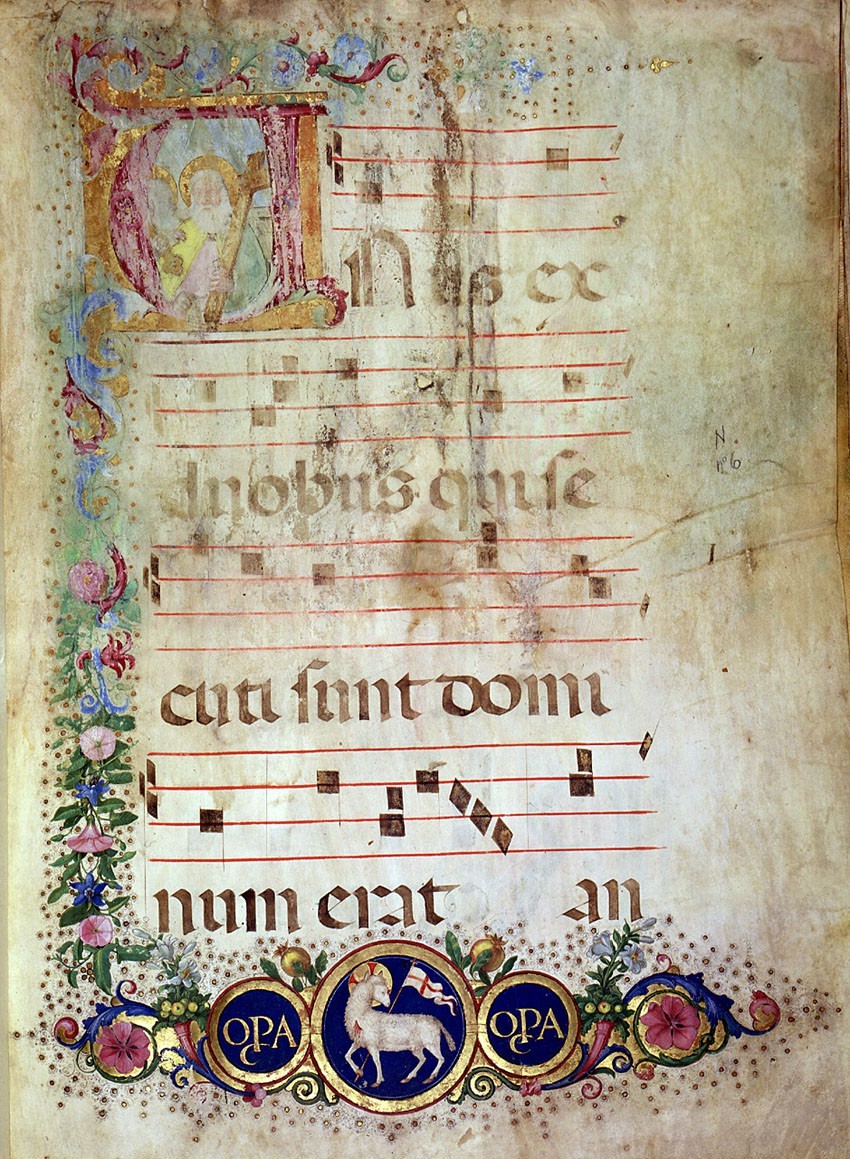 UNus ex
duobus qui se
cuti sunt domi
num erat an
N.
nº 6
OPA
OPA